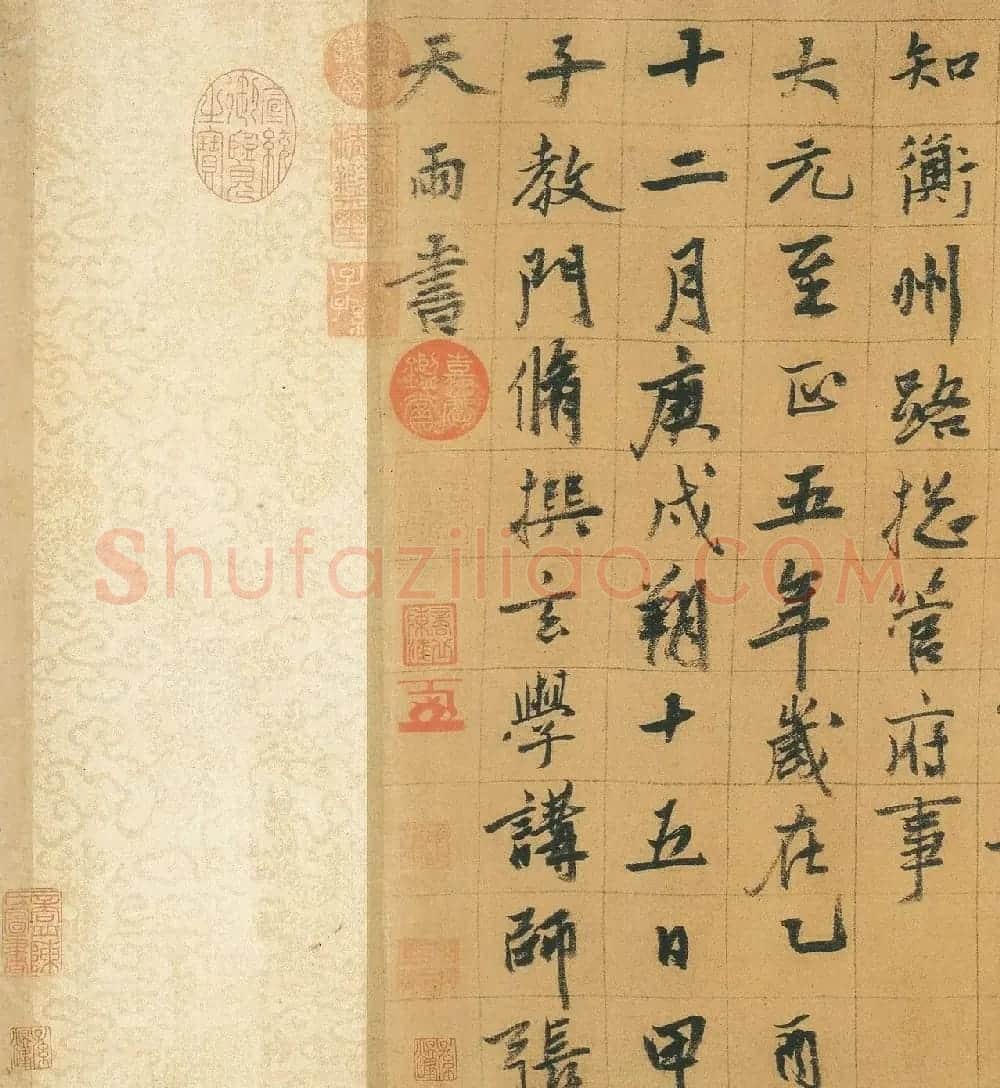 知衡州路揔管府事
大元至正五年歲在乙酉
十二月庚戌朔十五日甲
子教門脩撰玄學講師張
天雨書
嘉慶鑑賞
宣統御覽之寶
Shufaziliao.COM